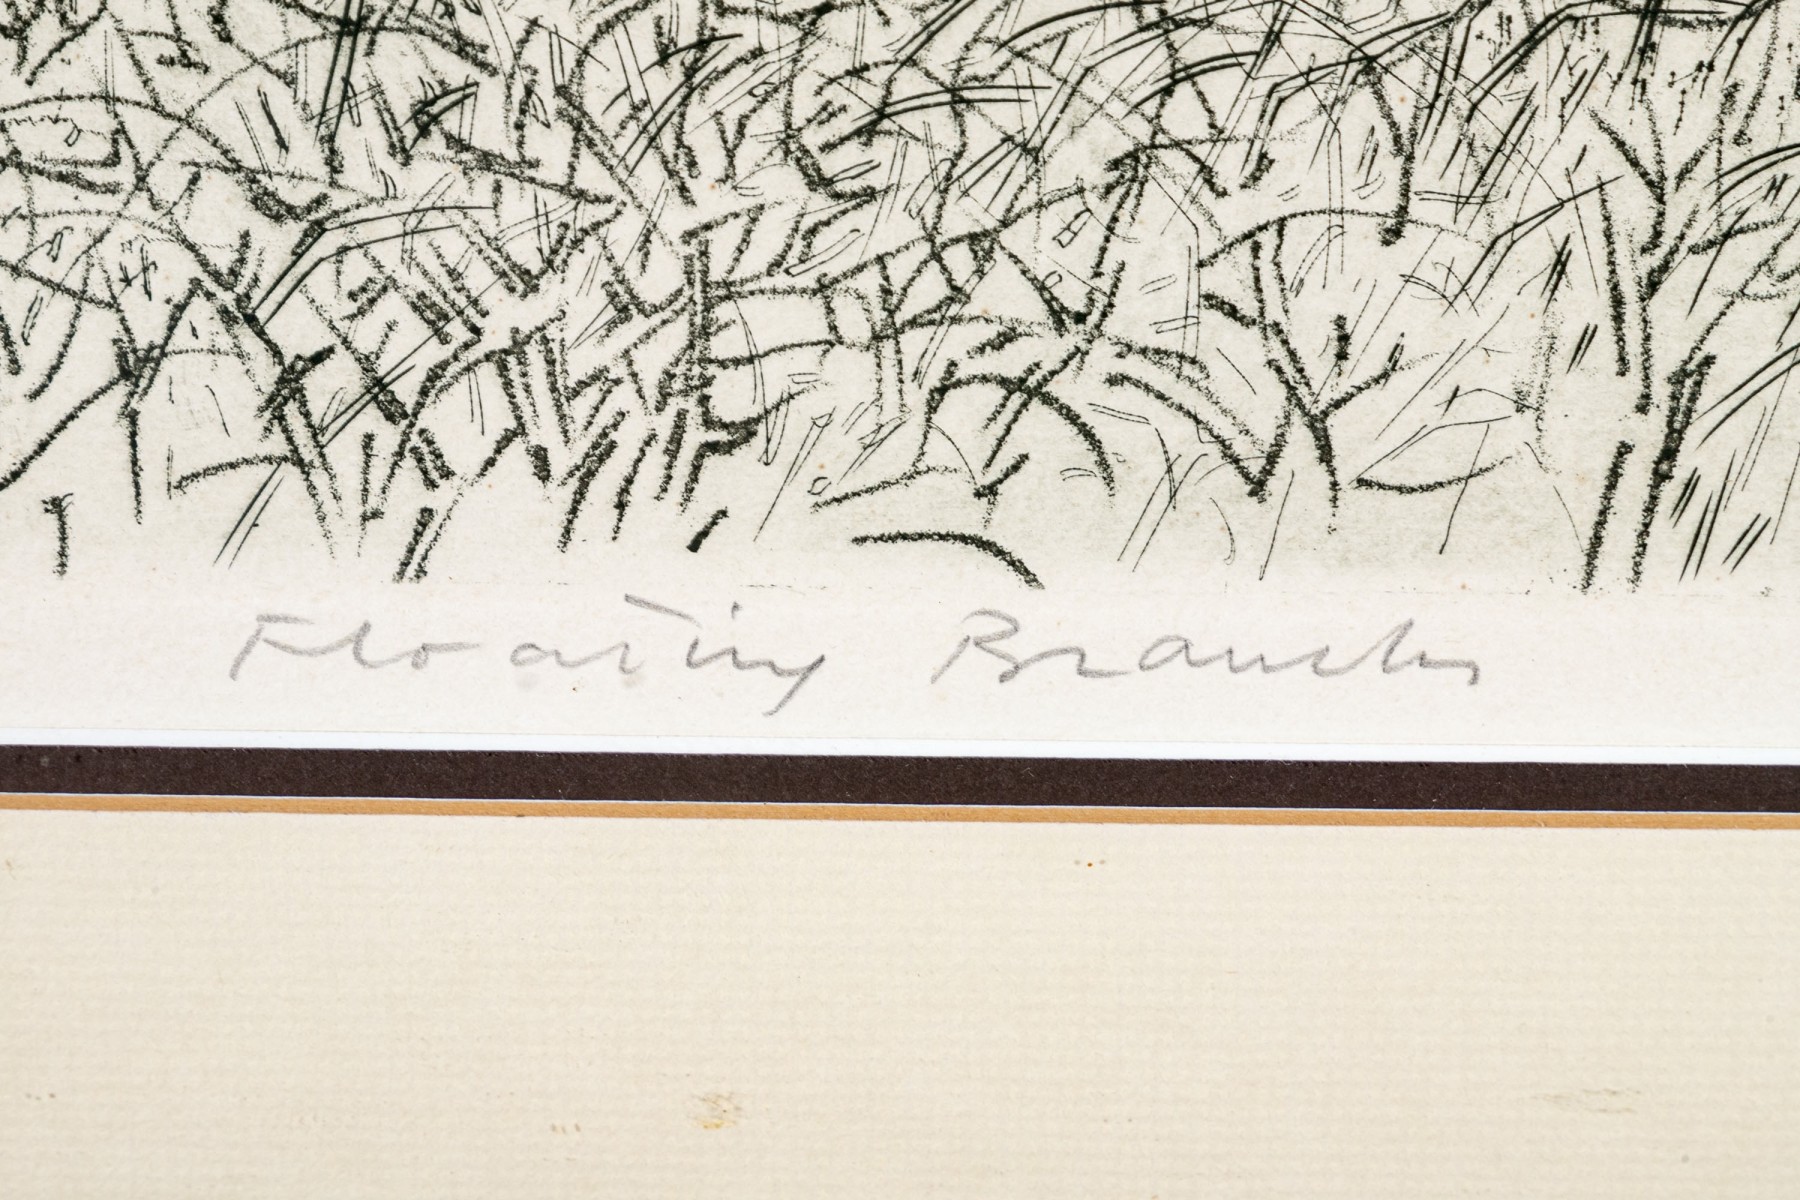 Floating Branches